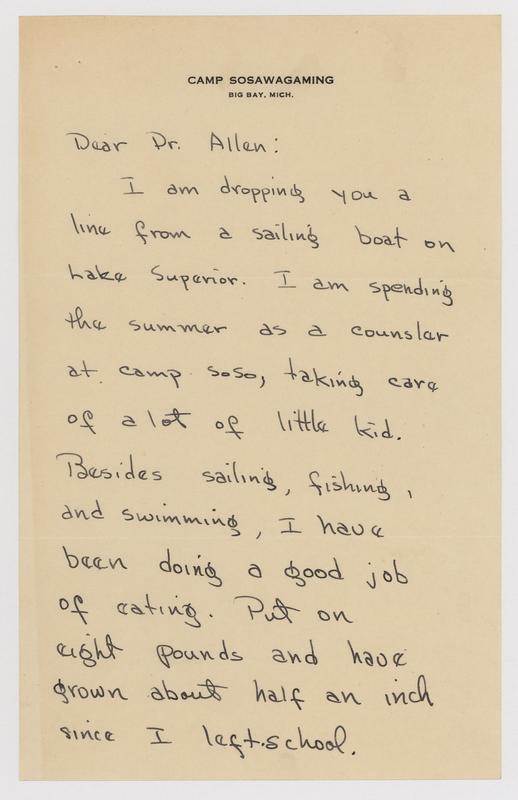 CAMP SOSAWAGAMING
BIG BAY, MICH.
Dear Dr. Allen:
I am dropping you a
line from a sailing boat on
Lake Superior. I am spending
the summer as a counsler
at camp soso, taking care
of a lot of little kid.
Besides sailing, fishing,
and swimming, I have
been doing a good job
of eating. Put on
eight pounds and have
grown about half an inch
since I left school.